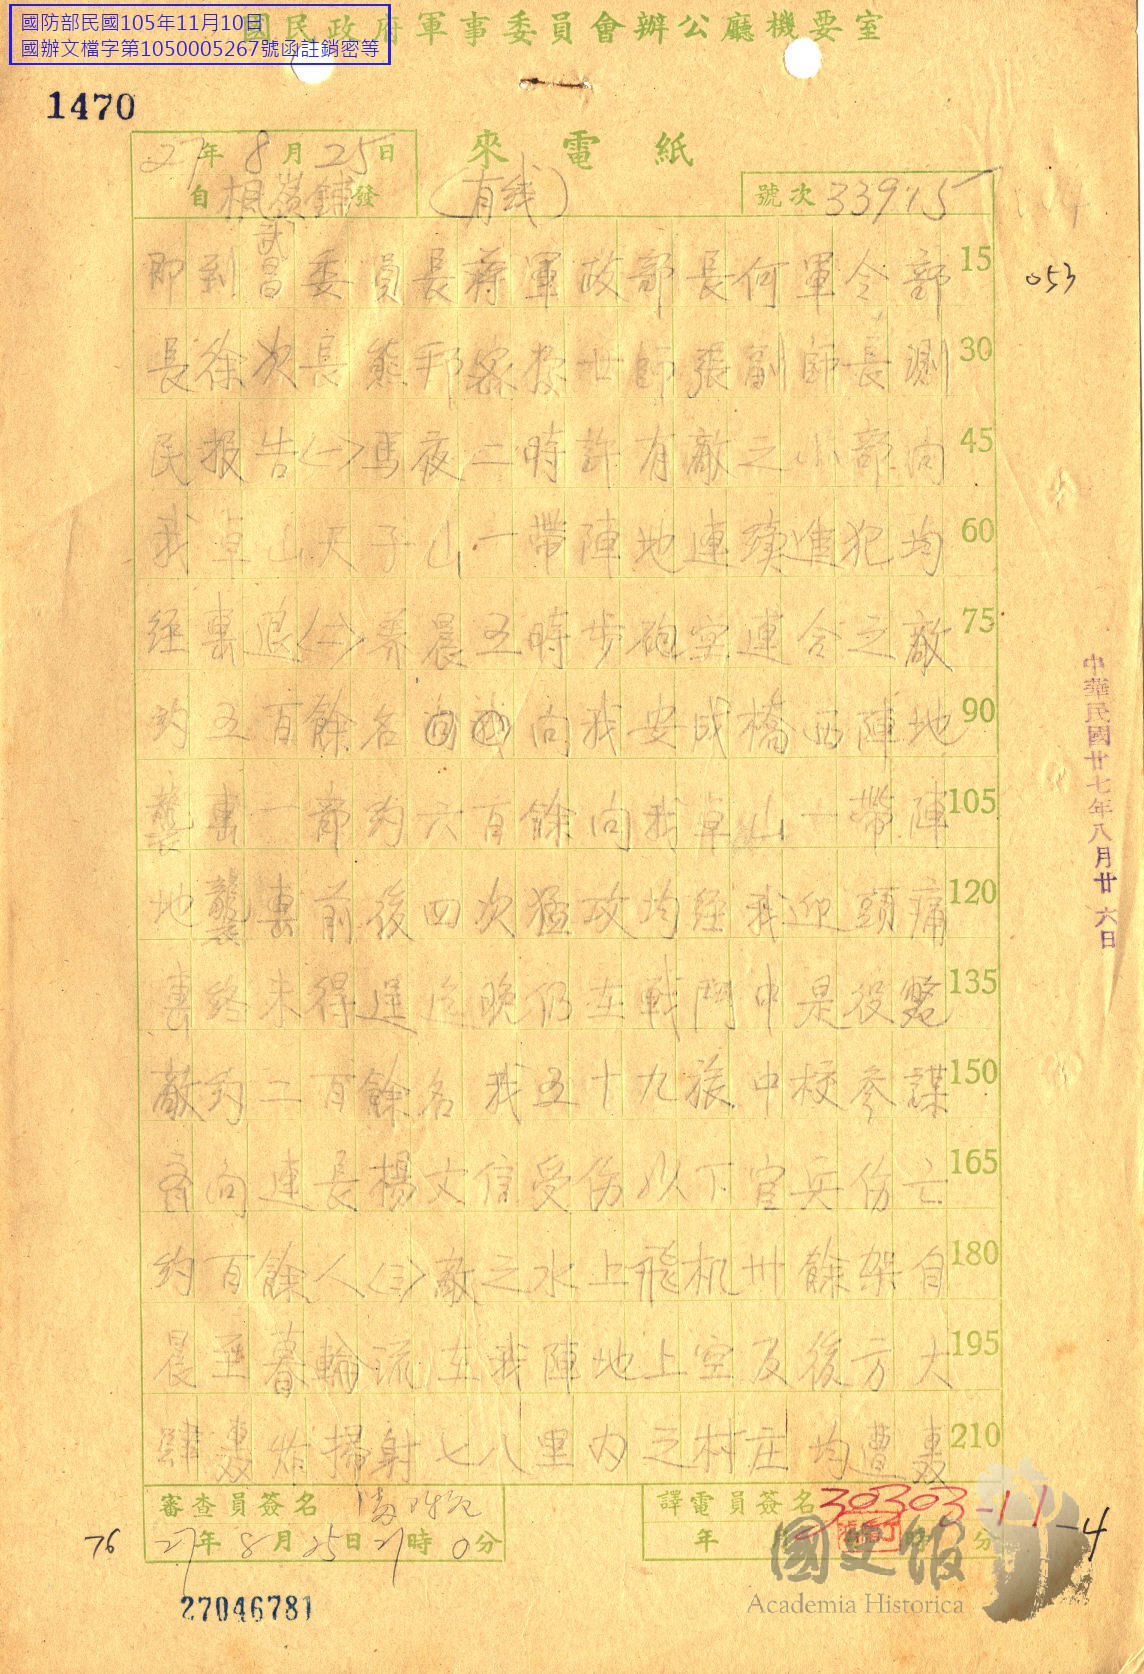 國防部民國105年11月10日
國辦文檔字第1050005267號函註銷密等
國民政府軍事委員會辦公廳機要室
1470
27年8月25日
來電紙
自楓嶺鋪發
(有线)
號次 33915
即到武昌委員長蔣軍政部長何軍令部 15
053
長徐次長熊 密據 師張副師長測 30
民报告<一>馬夜二時許有敵之小部向 45
我卓山天子山一帶陣地連續進犯均 60
經轟退<二>養晨五時步砲空連合之敵 75
約五百餘名向我安成橋西陣地 90
襲轟一部約六百餘向我卓山一帶陣 105
地襲轟前後四次猛攻均經我迎頭痛 120
轟終未得逞迄晚仍在戰鬥中是役斃 135
敵約二百餘名我五十九旅中校參謀 150
向連長楊文信受伤以下官兵伤亡 165
約百餘人<三>敵之水上飛机卅餘架自 180
晨至暮輪流在我陣地上空及後方大 195
肆轟炸掃射七八里內之村庄均遭轟 210
中華民國廿七年八月廿六日
審查員簽名
譯電員簽名
30303-11-4
76
27年8月25日21時0分
年
分
國史館
Academia Historica
27046781